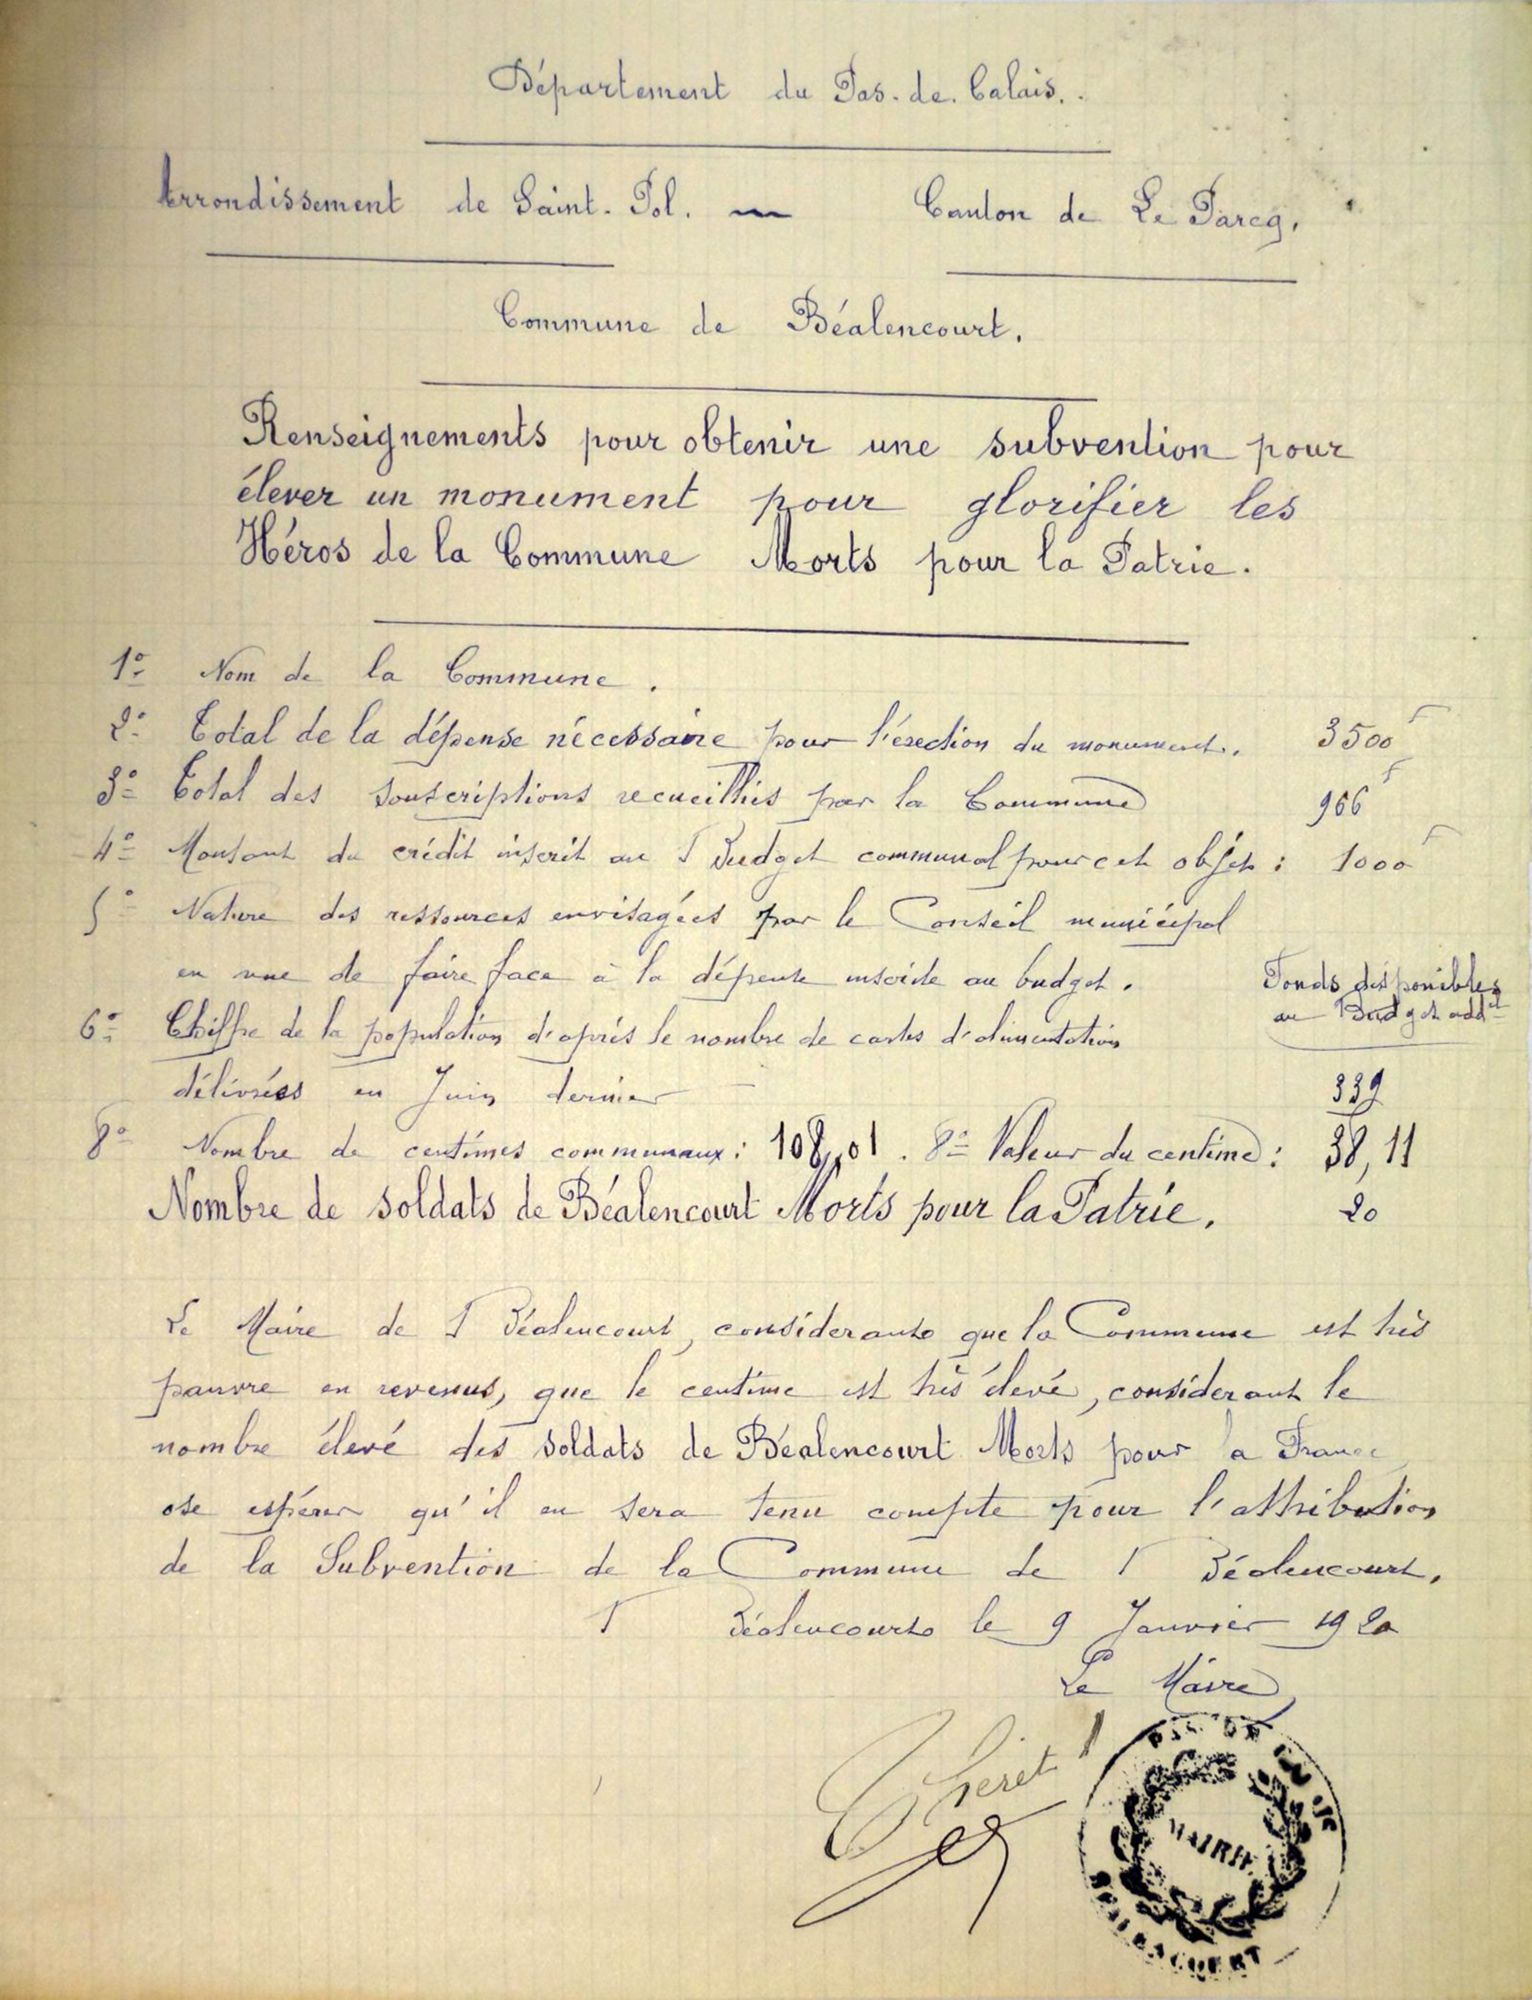 Département du Pas.de.Calais.
Arrondissement de Saint.Pol. — Canton de Le Parcq.
Commune de Béalencourt.
Renseignements pour obtenir une subvention pour
élever un monument pour glorifier les
Héros de la Commune Morts pour la Patrie.
1º Nom de la Commune.
2º Total de la dépense nécessaire pour l'érection du monument. 3500 F
3º Total des souscriptions recueillies par la Commune 966 F
4º Montant du crédit inscrit au Budget communal pour cet objet : 1000 F
5º Nature des ressources envisagées par le Conseil municipal
en vue de faire face à la dépense inscrite au budget. Fonds disponibles
au Budget addel
6º Chiffre de la population d'après le nombre de cartes d'alimentation
délivrées en Juin dernier — 339
8º Nombre de centimes communaux : 108,01. 8º Valeur du centime : 38,11
Nombre de soldats de Béalencourt Morts pour la Patrie. 20
Le Maire de Béalencourt, considérant que la Commune est très
pauvre en revenus, que le centime est très élevé, considérant le
nombre élevé des soldats de Béalencourt Morts pour la France
ose espérer qu'il en sera tenu compte pour l'attribution
de la Subvention de la Commune de Béalencourt.
Béalencourt le 9 Janvier 1920
Le Maire
Theret
MAIRIE
BÉALENCOURT